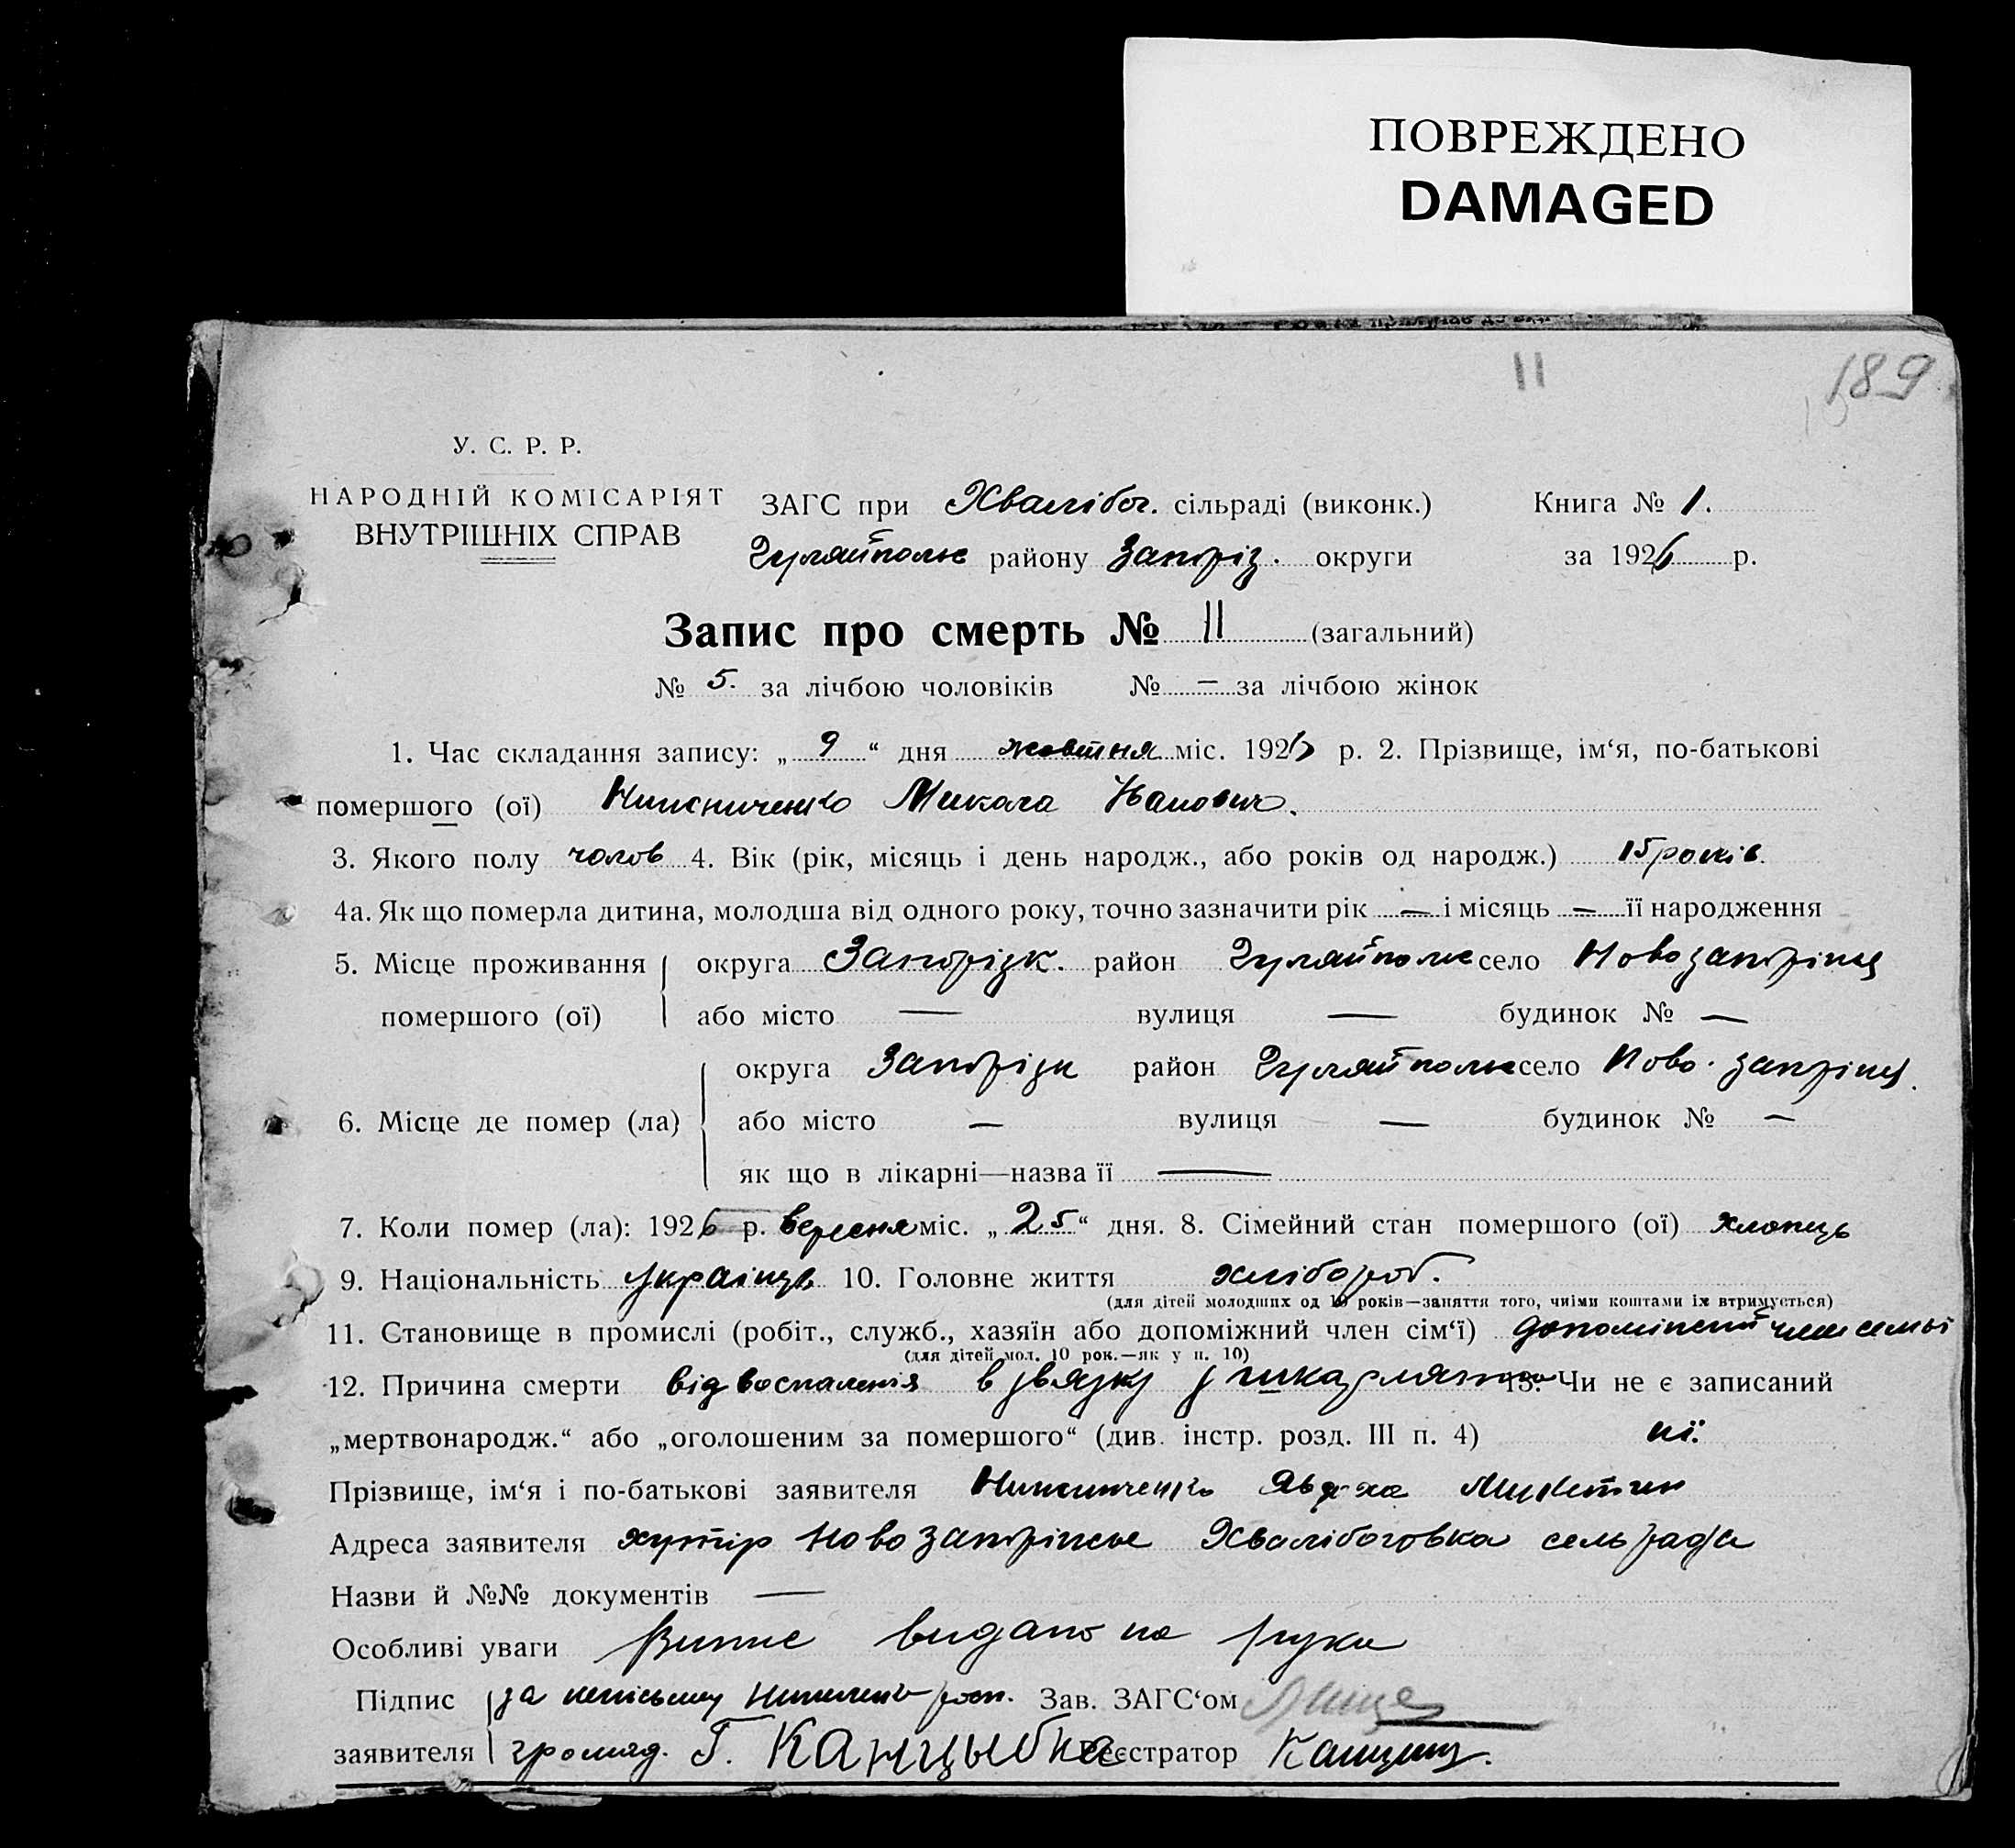 ПОВРЕЖДЕНО
DAMAGED
11
189
У. С. Р. Р.
НАРОДНІЙ КОМІСАРІЯТ
ВНУТРІШНІХ СПРАВ
ЗАГС при Хвалібог. сільраді (виконк.) Книга № 1.
Гуляйполе району Запоріз. округи за 1926 р.
Запис про смерть № 11 (загальний)
№ 5. за лічбою чоловіків № — за лічбою жінок
1. Час складання запису: „ 9 “ дня жовтня міс. 1926 р. 2. Прізвище, ім‘я, по-батькові
помершого (ої) Микола Іванович.
3. Якого полу чолов 4. Вік (рік, місяць і день народж., або років од народж.) 15 років.
4а. Як що померла дитина, молодша від одного року, точно зазначити рік — і місяць — її народження
5. Місце проживання округа Запорізк. район Гуляйполе село Новозапоріпця
помершого (ої) або місто — вулиця — будинок № —
округа Запорізк район Гуляйполе село Ново.
6. Місце де помер (ла) або місто — вулиця — будинок № —
як що в лікарні—назва її —
7. Коли помер (ла): 1926 р. вересня міс. „ 25 “ дня. 8. Сімейний стан помершого (ої) хлопець
9. Національність українць 10. Головне життя хлібороб.
(для дітей молодших од 10 років—заняття того, чиїми коштами їх втримується)
11. Становище в промислі (робіт., служб., хазяїн або допоміжний член сім‘ї) член семьі
(для дітей мол. 10 рок.—як у п. 10)
12. Причина смерти від воспаленія в звязку з 13. Чи не є записаний
„мертвонародж.“ або „оголошеним за помершого“ (див. інстр. розд. III п. 4) ні.
Прізвище, ім‘я і по-батькові заявителя
Адреса заявителя хутір Ново Хвалібоговка сельрада
Назви й №№ документів —
Особливі уваги видано на руки
Підпис за Зав. ЗАГС‘ом
заявителя громад. Г. Канцыбка Реєстратор